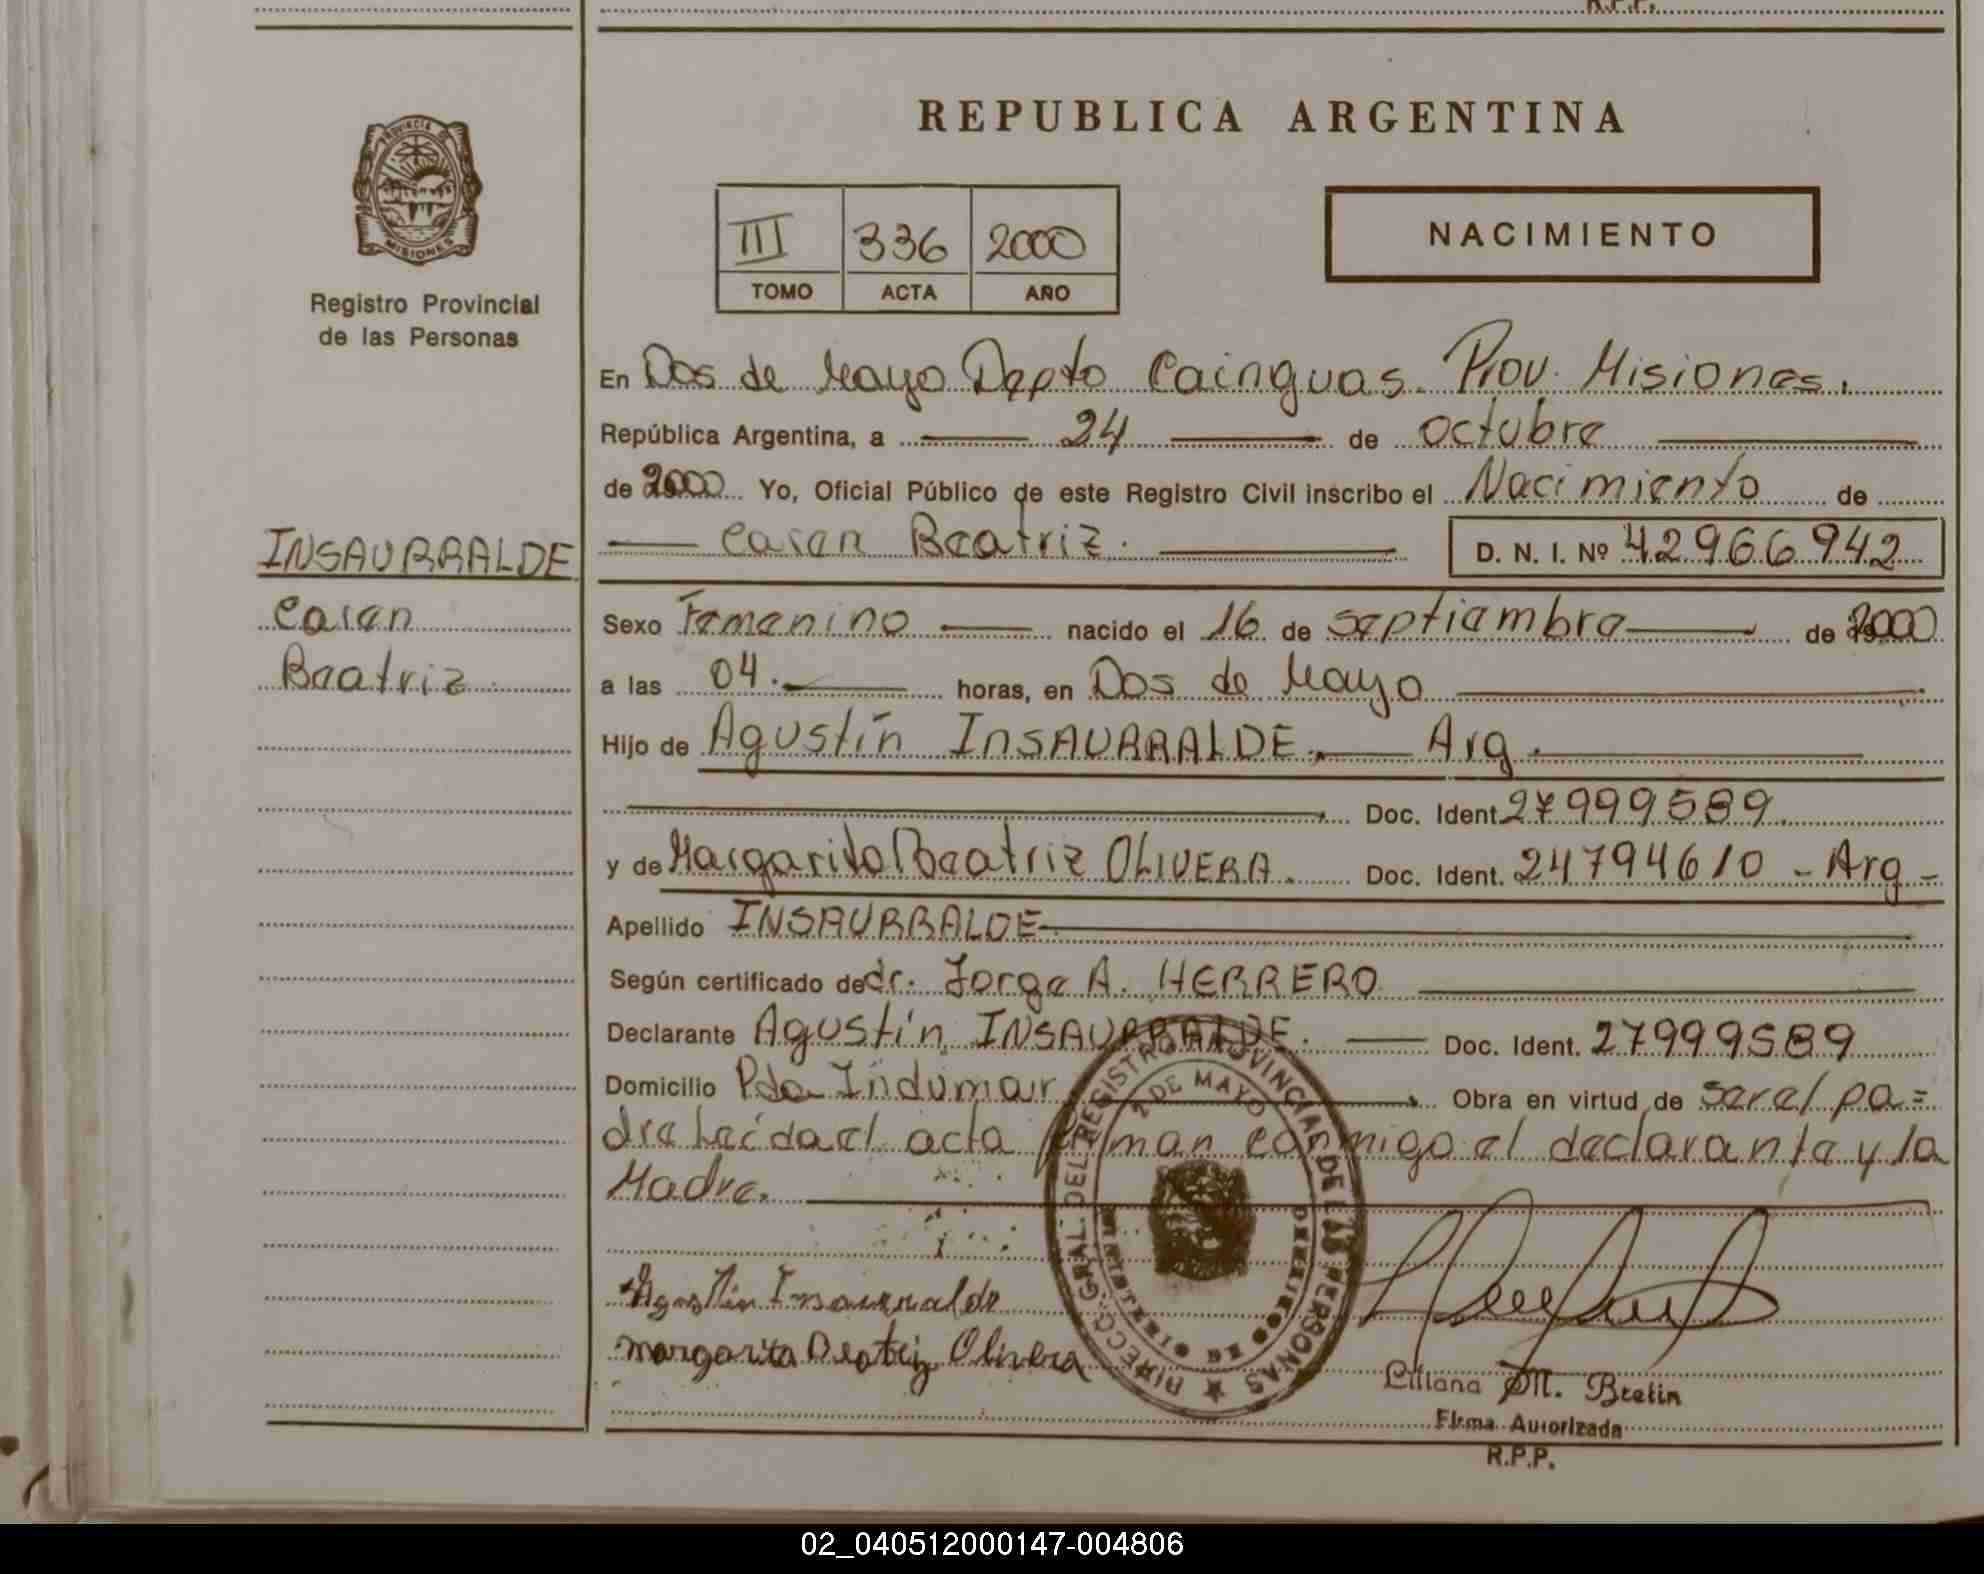 R.P.P.
PROVINCIA DE
MISIONES
Registro Provincial
de las Personas
REPUBLICA ARGENTINA
III 336 2000
TOMO ACTA AÑO
NACIMIENTO
En Dos de Mayo Depto Cainguas. Prov. Misiones.
República Argentina, a 24 de octubre
de 2000 Yo, Oficial Público de este Registro Civil inscribo el Nacimiento de
Caren Beatriz. D. N. I. Nº 42966942
INSAURRALDE
Caren
Beatriz.
Sexo Femenino nacido el 16 de septiembre de 2000
a las 04. horas, en Dos de Mayo
Hijo de Agustín INSAURRALDE. Arg.
Doc. Ident. 27999589.
y de Margarita Beatriz OLIVERA. Doc. Ident. 24794610 - Arg -
Apellido INSAURRALDE
Según certificado de dr. Jorge A. HERRERO
Declarante Agustín INSAURRALDE. Doc. Ident. 27999589
Domicilio Pdo Indumar Obra en virtud de ser el pa=
dre Leída el acta firman conmigo el declarante y la
Madre.
DIRECC. GRAL. DEL REGISTRO PROVINCIAL DE LAS PERSONAS
2 DE MAYO
MINISTERIO DE GOBIERNO
Agustín Insaurralde
margarita Beatriz Olivera
Liliana M. Bretin
Firma Autorizada
R.P.P.
02_040512000147-004806